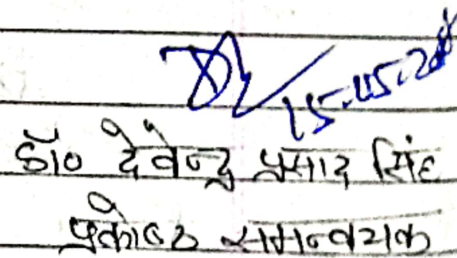 डॉ० देवेन्द्र प्रसाद सिंह
प्रकोष्ठ समन्वयक